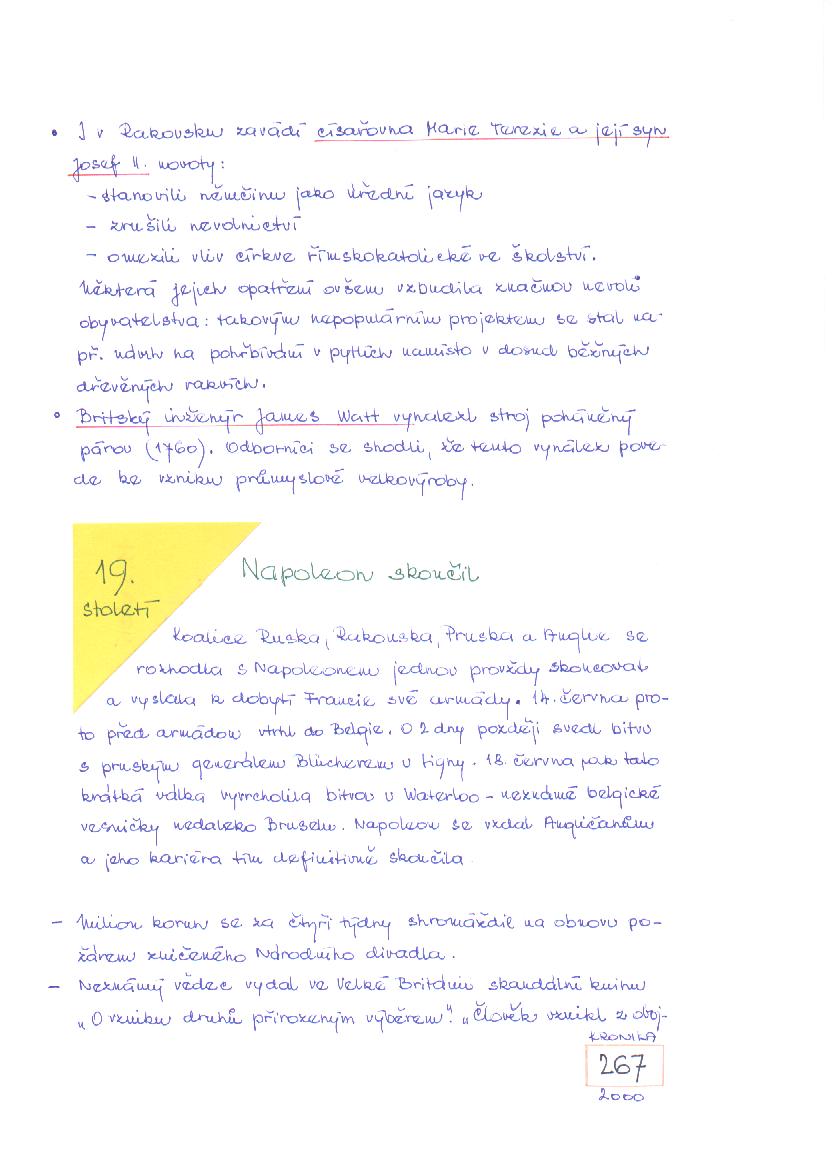 • I v Rakousku zavádí císařovna Marie Terezie a její syn
Josef II. novoty:
- stanovili němčinu jako úřední jazyk
- zrušili nevolnictví
- omezili vliv církve římskokatolické ve školství.
Některá jejich opatření ovšem vzbudila značnou nevoli
obyvatelstva: takovým nepopulárním projektem se stal na-
př. návrh na pohřbívání v pytlích namísto v dosud běžných
dřevěných rakvích.
• Britský inženýr James Watt vynalezl stroj poháněný
párou (1760). Odborníci se shodli, že tento vynález pove-
de ke vzniku průmyslové velkovýroby.
19.
století
Napoleon skončil
Koalice Ruska, Rakouska, Pruska a Anglie se
rozhodla s Napoleonem jednou provždy skoncovat
a vyslala k dobytí Francie své armády. 14. června pro-
to před armádou vtrhl do Belgie. O 2 dny později svedl bitvu
s pruským generálem Blücherem u Ligny. 18. června pak tato
krátká válka vyvrcholila bitvou u Waterloo - neznámé belgické
vesničky nedaleko Bruselu. Napoleon se vzdal Angličanům
a jeho kariéra tím definitivně skončila.
- Milion korun se za čtyři týdny shromáždil na obnovu po-
žárem zničeného Národního divadla.
- Neznámý vědec vydal ve Velké Británii skandální knihu
„O vzniku druhů přirozeným výběrem". „Člověk vznikl z obj-
KRONIKA
267
2000